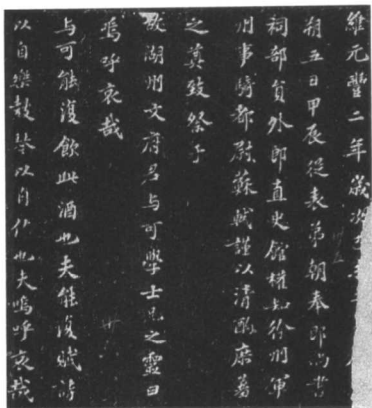 維元豐二年歲次己未
朔五日甲辰從表弟朝奉郎尚書
祠部員外郎直史館權知徐州軍
州事騎都尉蘇軾謹以清酌庶羞
之奠致祭于
故湖州文府君与可學士兄之靈曰
嗚呼哀哉
与可能復飲此酒也夫能復賦詩
以自樂鼓琴以自侑也夫嗚呼哀哉